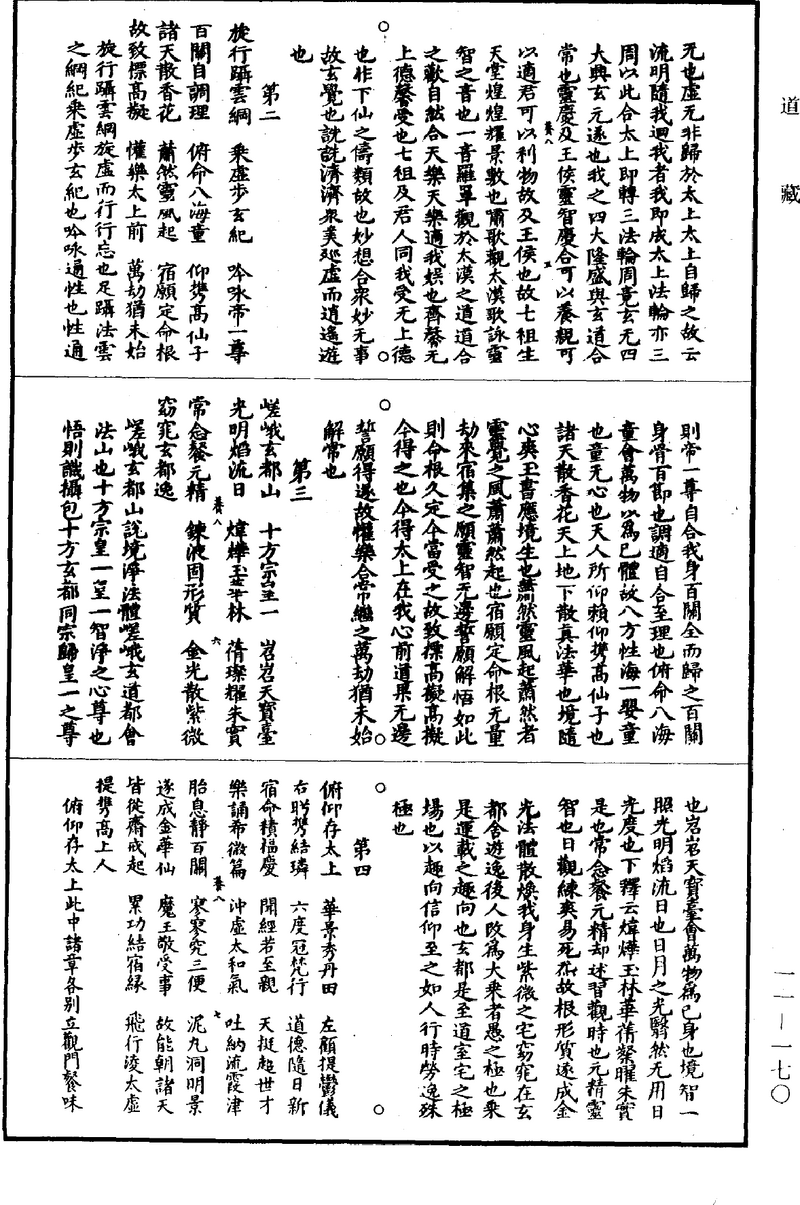 道藏
无也虛无非歸於太上太上自歸之故云
流明隨我迴我者我即成太上法輪亦三
周以此合太上即轉三法輪周竟玄无四
大與玄元遂也我之四大隆盛與玄道合
常也靈慶及王侯靈智慶合可以養親可
以適君可以利物故及王侯也故七祖生
天堂煌煌耀景敷也嘯歌觀太漠歌詠靈
智之音也一音羅單觀於太漠之道道合
之歡自然合天樂天樂適我娛也齊馨无
上德馨受也七祖及君人同我受无上德
也非下仙之儔類故也妙想合衆妙无事
故玄覺也詵詵濟濟衆美延虛而逍遙遊
也
第二
旋行躡雲綱 乘虛步玄紀 吟咏帝一尊
百關自調理 俯命八海童 仰攜高仙子
諸天散香花 蕭然靈風起 宿願定命根
故致標高擬 懽樂太上前 萬劫猶未始
旋行躡雲綱旋虛而行行忘也足躡法雲
之綱紀乘虛步玄紀也吟咏適性也性通
則帝一尊自合我身百關全而歸之百關
身骨百節也調適自合至理也俯命八海
童會萬物以為已體故八方性海一嬰童
也童无心也天人所仰賴仰攜高仙子也
諸天散香花天上地下散真法華也境隨
心爽玉書應境生也蕭然靈風起蕭然者
靈覺之風蕭蕭然起也宿願定命根无量
劫來宿集之願靈智无邊誓願解悟如此
則命根久定今當受之故致標高擬高擬
今得之也今得太上在我心前道果无邊
誓願得遂故懽樂合常繼之萬劫猶未始
解常也
第三
嵯峨玄都山 十方宗皇一 岧岧天寶臺
光明焰流日 煒燁玉華林 蒨璨耀朱實
常念餐元精 鍊液固形質 金光散紫微
窈窕玄都逸
嵯峨玄都山說境淨法體嵯峨玄道都會
法山也十方宗皇一皇一智淨之心尊也
悟則識攝包十方玄都同宗歸皇一之尊
也岧岧天寶臺會萬物為已身也境智一
照光明焰流日也日月之光翳然无用日
光度也下釋云煒燁玉林華蒨粲曜朱實
是也常念餐元精却述習觀時也元精靈
智也日觀練爽易死炁故根形質遂成金
光法體散煥我身生紫微之宅窈窕在玄
都舍遊逸後人改為大乘者愚之極也乘
是運載之趣向也玄都是至道室宅之極
場也以趣向信仰至之如人行時勞逸殊
極也
第四
俯仰存太上 華景秀丹田 左顧提鬱儀
右眄攜結璘 六度冠梵行 道德隨日新
宿命積福慶 聞經若至親 天挺超世才
樂誦希微篇 沖虛太和氣 吐納流霞津
胎息靜百關 寥寥究三便 泥丸洞明景
遂成金華仙 魔王敬受事 故能朝諸天
皆從齋戒起 累功結宿緣 飛行淩太虛
提攜高上人
俯仰存太上此中諸章各別立觀門餐味
一一—一七〇